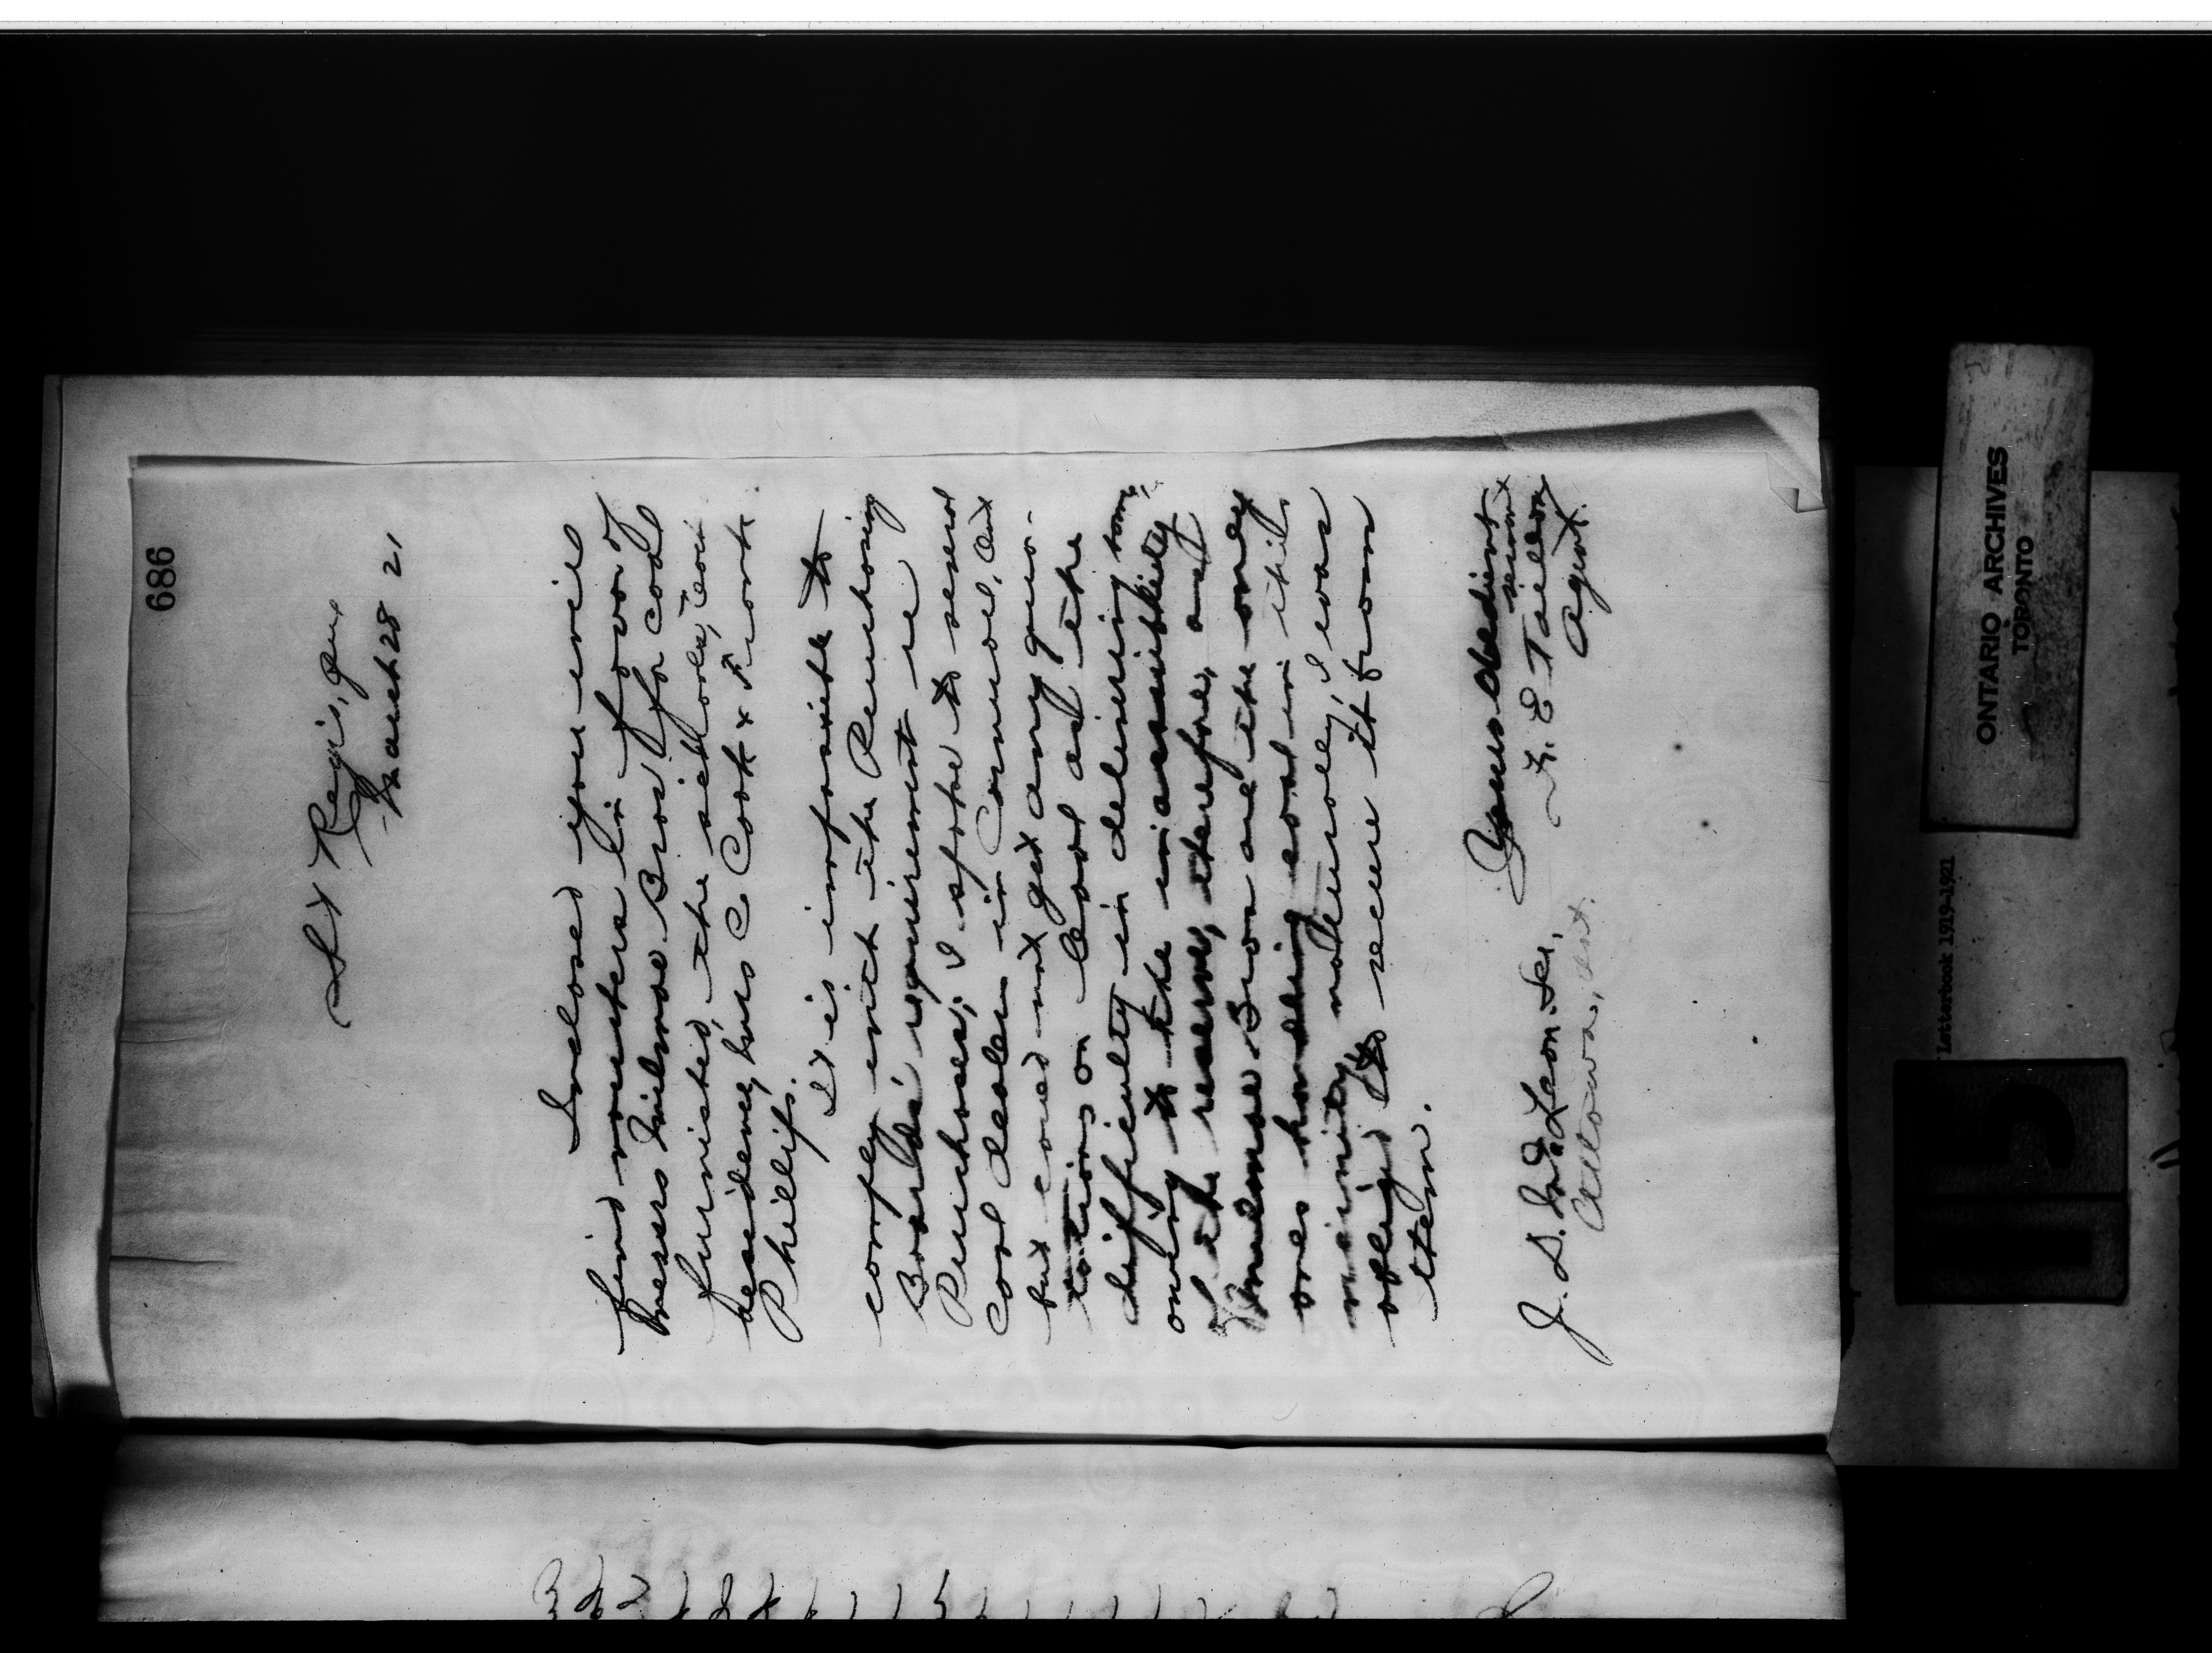 686
St Regis, Que
March 28 21
Inclosed you will
find vouchers in favor of
Messrs Milmoe Bros for coal
furnished, the schools, Coun
residence, Mrs C Cook & Frank
Phillips.
It is impossible to
comply with the Purchasing
Boards' requirement re
Purchases; I spoke to several
Coal dealers in Cornwall, Ont
but could not get any quo-
tations on Coal as the
difficulty in delivering same
owing to the inaccessibility
of the reserve, therefore, as
Milmoe Bros are the only
ones handling coal in this
vicinity, naturally, I was
obliged to secure it from
them.
Yours obedient
servant
F. E Taillon
Agent.
J. D. McLean Esq,
Ottawa, Ont.
ONTARIO ARCHIVES
TORONTO
Letterbook 1919-1921